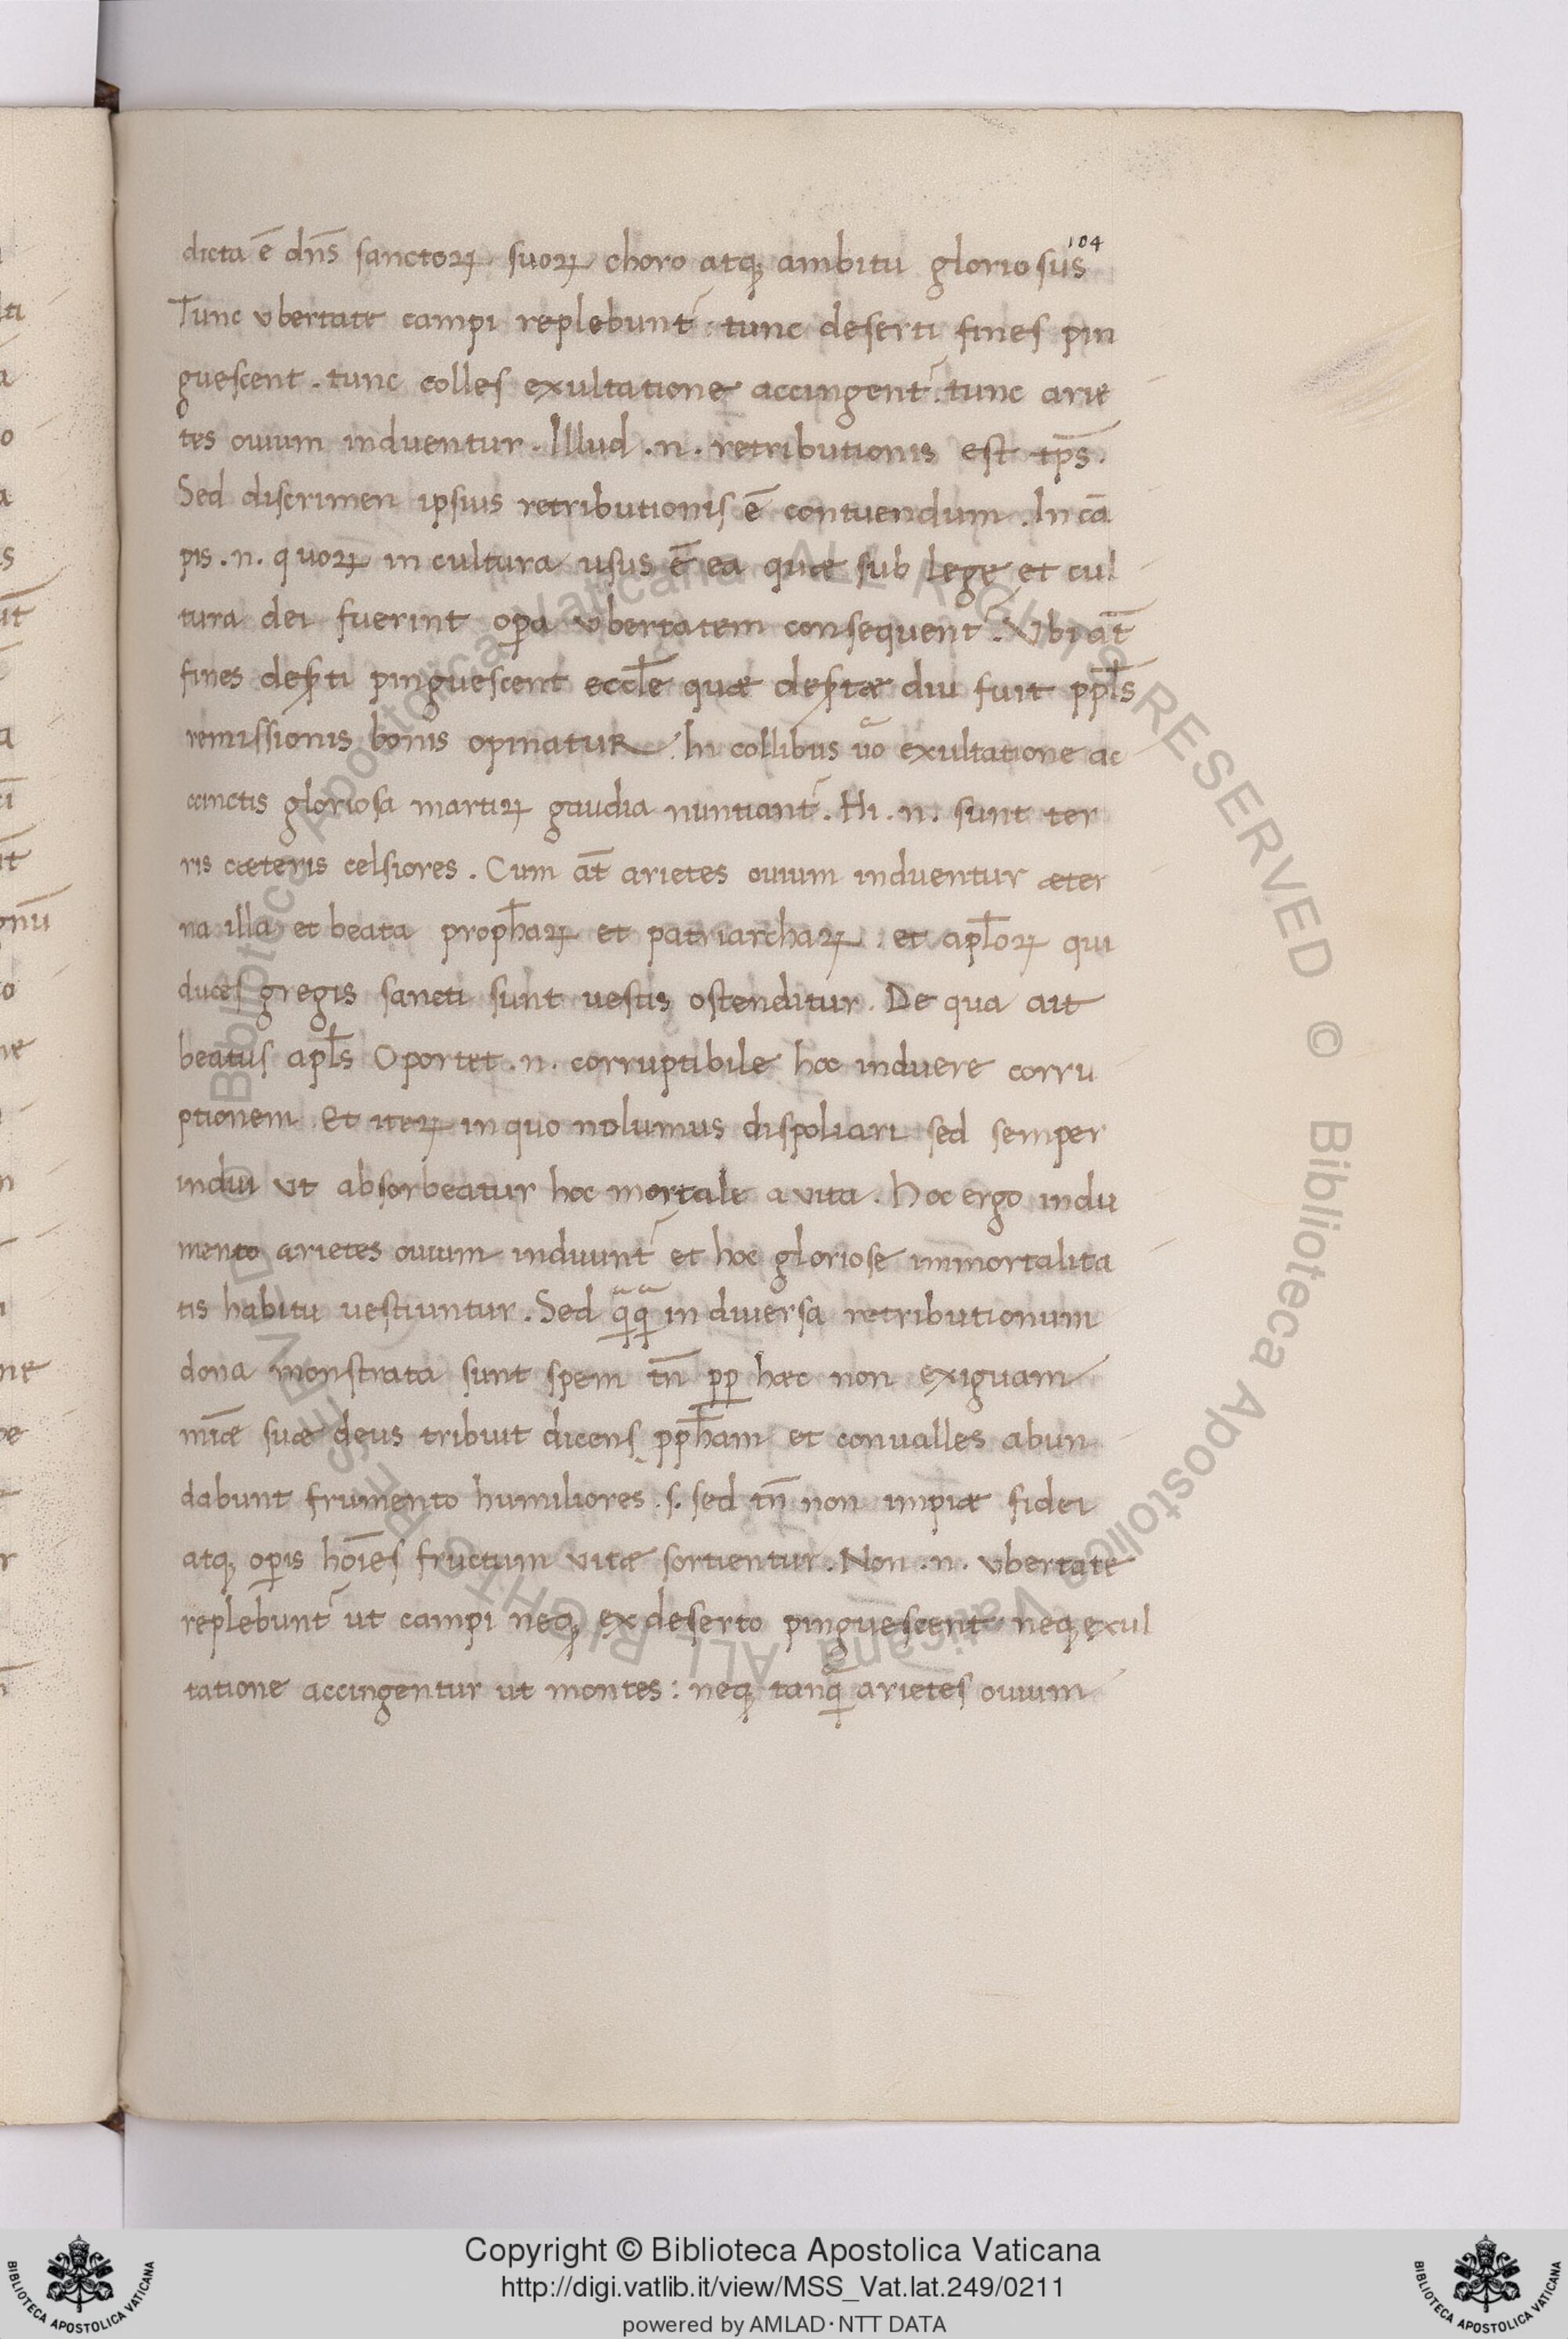 104
dicta ē dn̄s sanctoꝝ suoꝝ choro atqꝫ ambitu gloriosus
Tunc vbertate campi replebunt᷑ : tunc deserti fines pin
guescent . tunc colles exultatione accingent᷑ . tunc arie
tes ouium induentur . Illud .n. retributionis est tp̄s .
Sed discrimen ipsius retributionis ē contuendum . In cā
pis .n. quoꝝ in cultura usus ē ea quæ sub lege et cul
tura dei fuerint oꝑa vbertatem consequent᷑ . Vbi at̄
fines deſꝑti pinguescent eccl̄e quæ deſꝑtæ diu fuit ppl̄s
remissionis bonis opinatur . In collibus uͦo exultatione ac
cinctis gloriosa martiꝝ gaudia nuntiant᷑ . Hi .n. sunt ter
ris cæteris celsiores . Cum at̄ arietes ouium induentur æter
na illa et beata proph̄aꝝ et patriarchaꝝ . et apl̄oꝝ qui
duces gregis sancti sunt uestis ostenditur . De qua ait
beatus apl̄s Oportet .n. corruptibile hoc induere corru
ptionem Et iteꝝ in quo nolumus dispoliari sed semper
indui vt absorbeatur hoc mortale a vita . Hoc ergo indu
mento arietes ouium induunt᷑ et hoc gloriose immortalita
tis habitu uestiuntur . Sed qͣqͣ in diuersa retributionum
dona monstrata sunt spem tn̄ ꝑꝑ hæc non exiguam
mīæ suæ deus tribuit dicens ꝑph̄am et conualles abun
dabunt frumento humiliores .s. sed tn̄ non impiæ fidei
atqꝫ oꝑis hōīes fructum vitæ sortientur . Non .n. vbertate
replebunt᷑ ut campi neqꝫ ex deserto pinguescent neqꝫ exul
tatione accingentur ut montes : neqꝫ tanqͣ arietes ouium
Copyright © Biblioteca Apostolica Vaticana
http://digi.vatlib.it/view/MSS_Vat.lat.249/0211
powered by AMLAD·NTT DATA